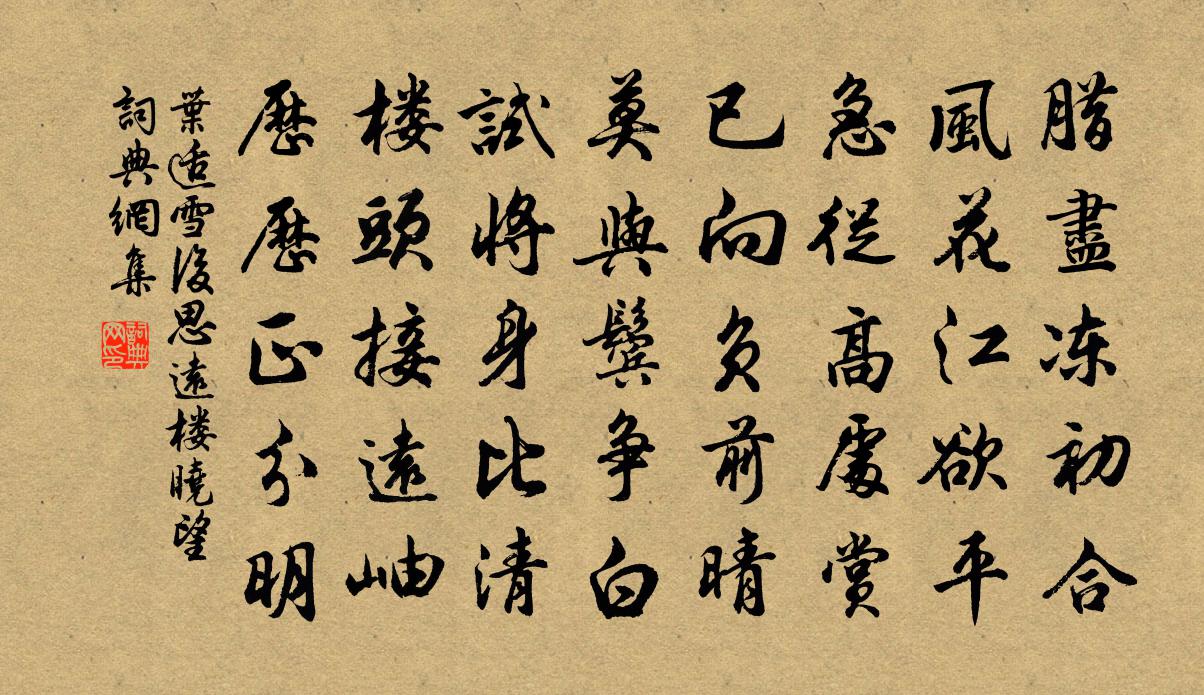 腊盡冻初合
風花江欲平
急從高處賞
已向負前晴
莫與鬓争白
試將身比清
楼頭接遠岫
歷歷正分明
葉适雪後思遠楼曉望
詞典網集
詞典网印